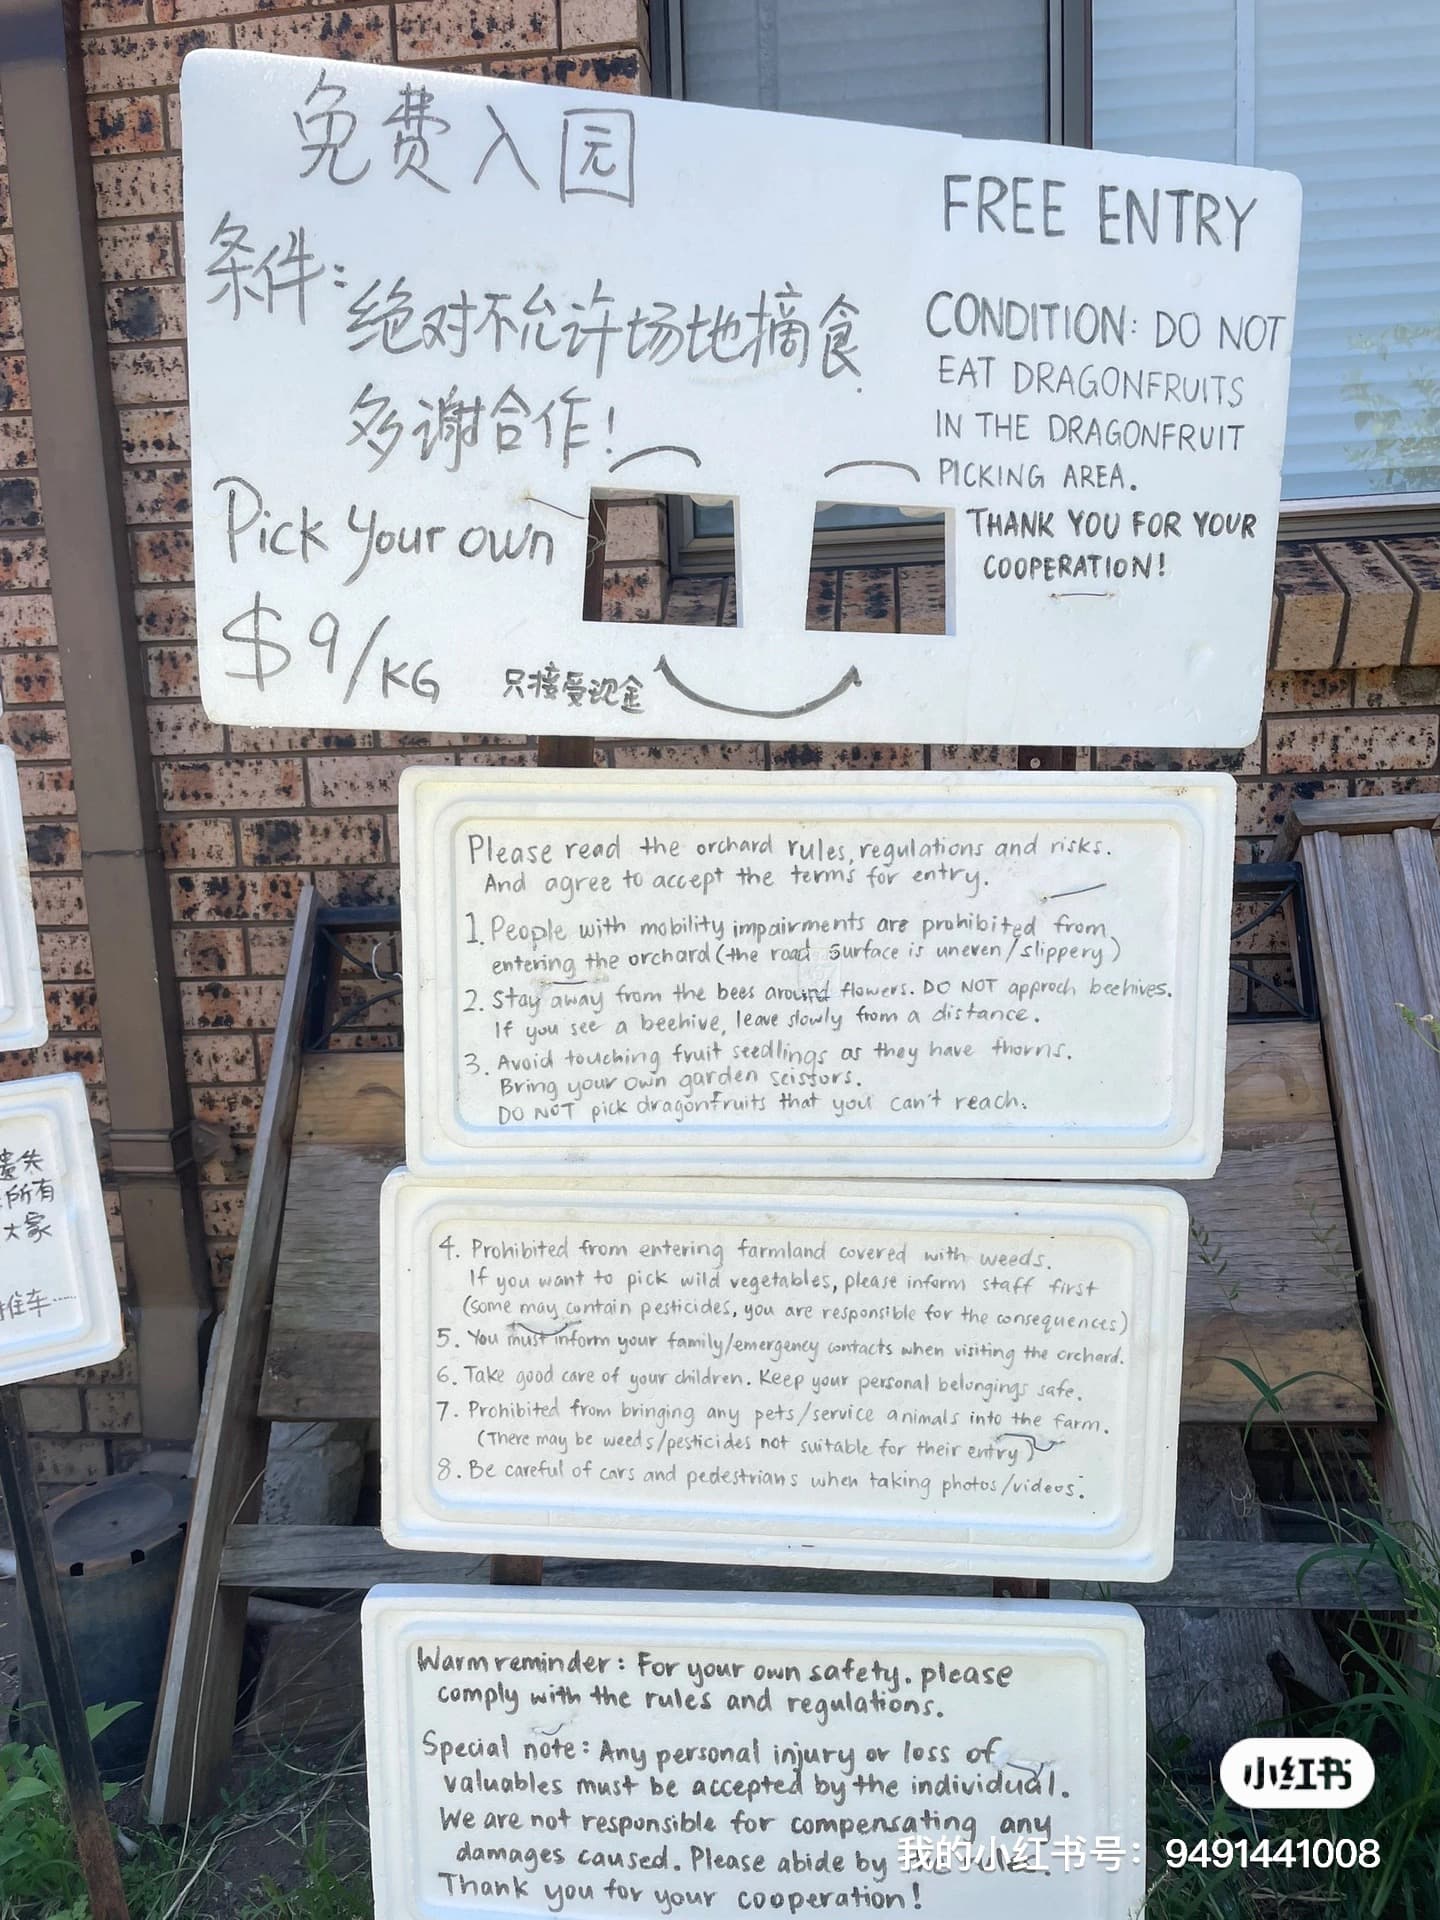 免费入园
条件：
绝对不允许场地摘食.
多谢合作！
Pick Your own
$9/KG
只接受现金
FREE ENTRY
CONDITION: DO NOT
EAT DRAGONFRUITS
IN THE DRAGONFRUIT
PICKING AREA.
THANK YOU FOR YOUR
COOPERATION!
Please read the orchard rules, regulations and risks.
And agree to accept the terms for entry.
1. People with mobility impairments are prohibited from
entering the orchard (the road surface is uneven/slippery)
2. Stay away from the bees around flowers. DO NOT approch beehives.
If you see a beehive, leave slowly from a distance.
3. Avoid touching fruit seedlings as they have thorns.
Bring your own garden scissors.
DO NOT pick dragonfruits that you can't reach.
4. Prohibited from entering farmland covered with weeds.
If you want to pick wild vegetables, please inform staff first
(some may contain pesticides, you are responsible for the consequences)
5. You must inform your family/emergency contacts when visiting the orchard.
6. Take good care of your children. Keep your personal belongings safe.
7. Prohibited from bringing any pets/service animals into the farm.
(There may be weeds/pesticides not suitable for their entry)
8. Be careful of cars and pedestrians when taking photos/videos.
Warm reminder: For your own safety. please
comply with the rules and regulations.
Special note: Any personal injury or loss of
valuables must be accepted by the individual.
We are not responsible for compensating any
damages caused. Please abide by the rules.
Thank you for your cooperation!
遗失
所有
大家
推车......
小红书
我的小红书号：9491441008